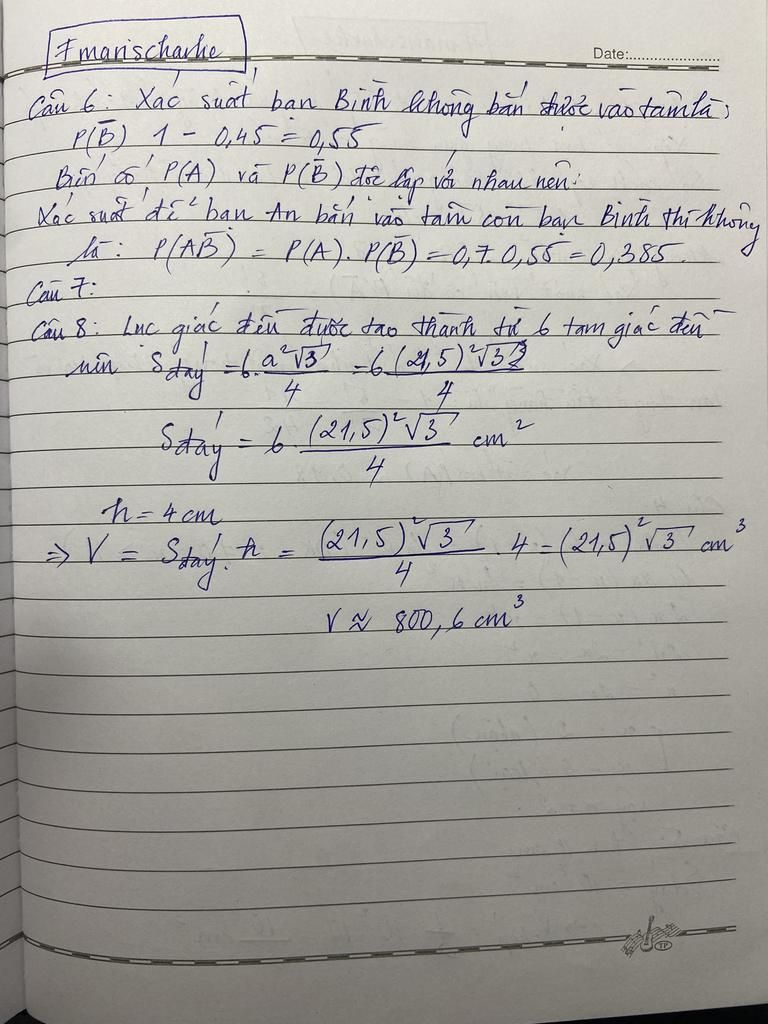 Fmarischarke
Date:
Câu 6: Xác suất bạn Bình không bắn được vào tâm là:
P(B̅) 1 - 0,45 = 0,55
Biến cố P(A) và P(B̅) độc lập với nhau nên:
Xác suất để bạn An bắn vào tâm còn bạn Bình thì không
là: P(AB̅) = P(A). P(B̅) = 0,7. 0,55 = 0,385.
Câu 7:
Câu 8: Lục giác đều được tạo thành từ 6 tam giác đều
nên Sđáy = 6. a²√3/4 = 6. (21,5)²√3/4
Sđáy = 6. (21,5)²√3/4 cm²
h = 4 cm
⇒ V = Sđáy. h = (21,5)²√3/4 . 4 = (21,5)²√3 cm³
V ≈ 800,6 cm³
TP